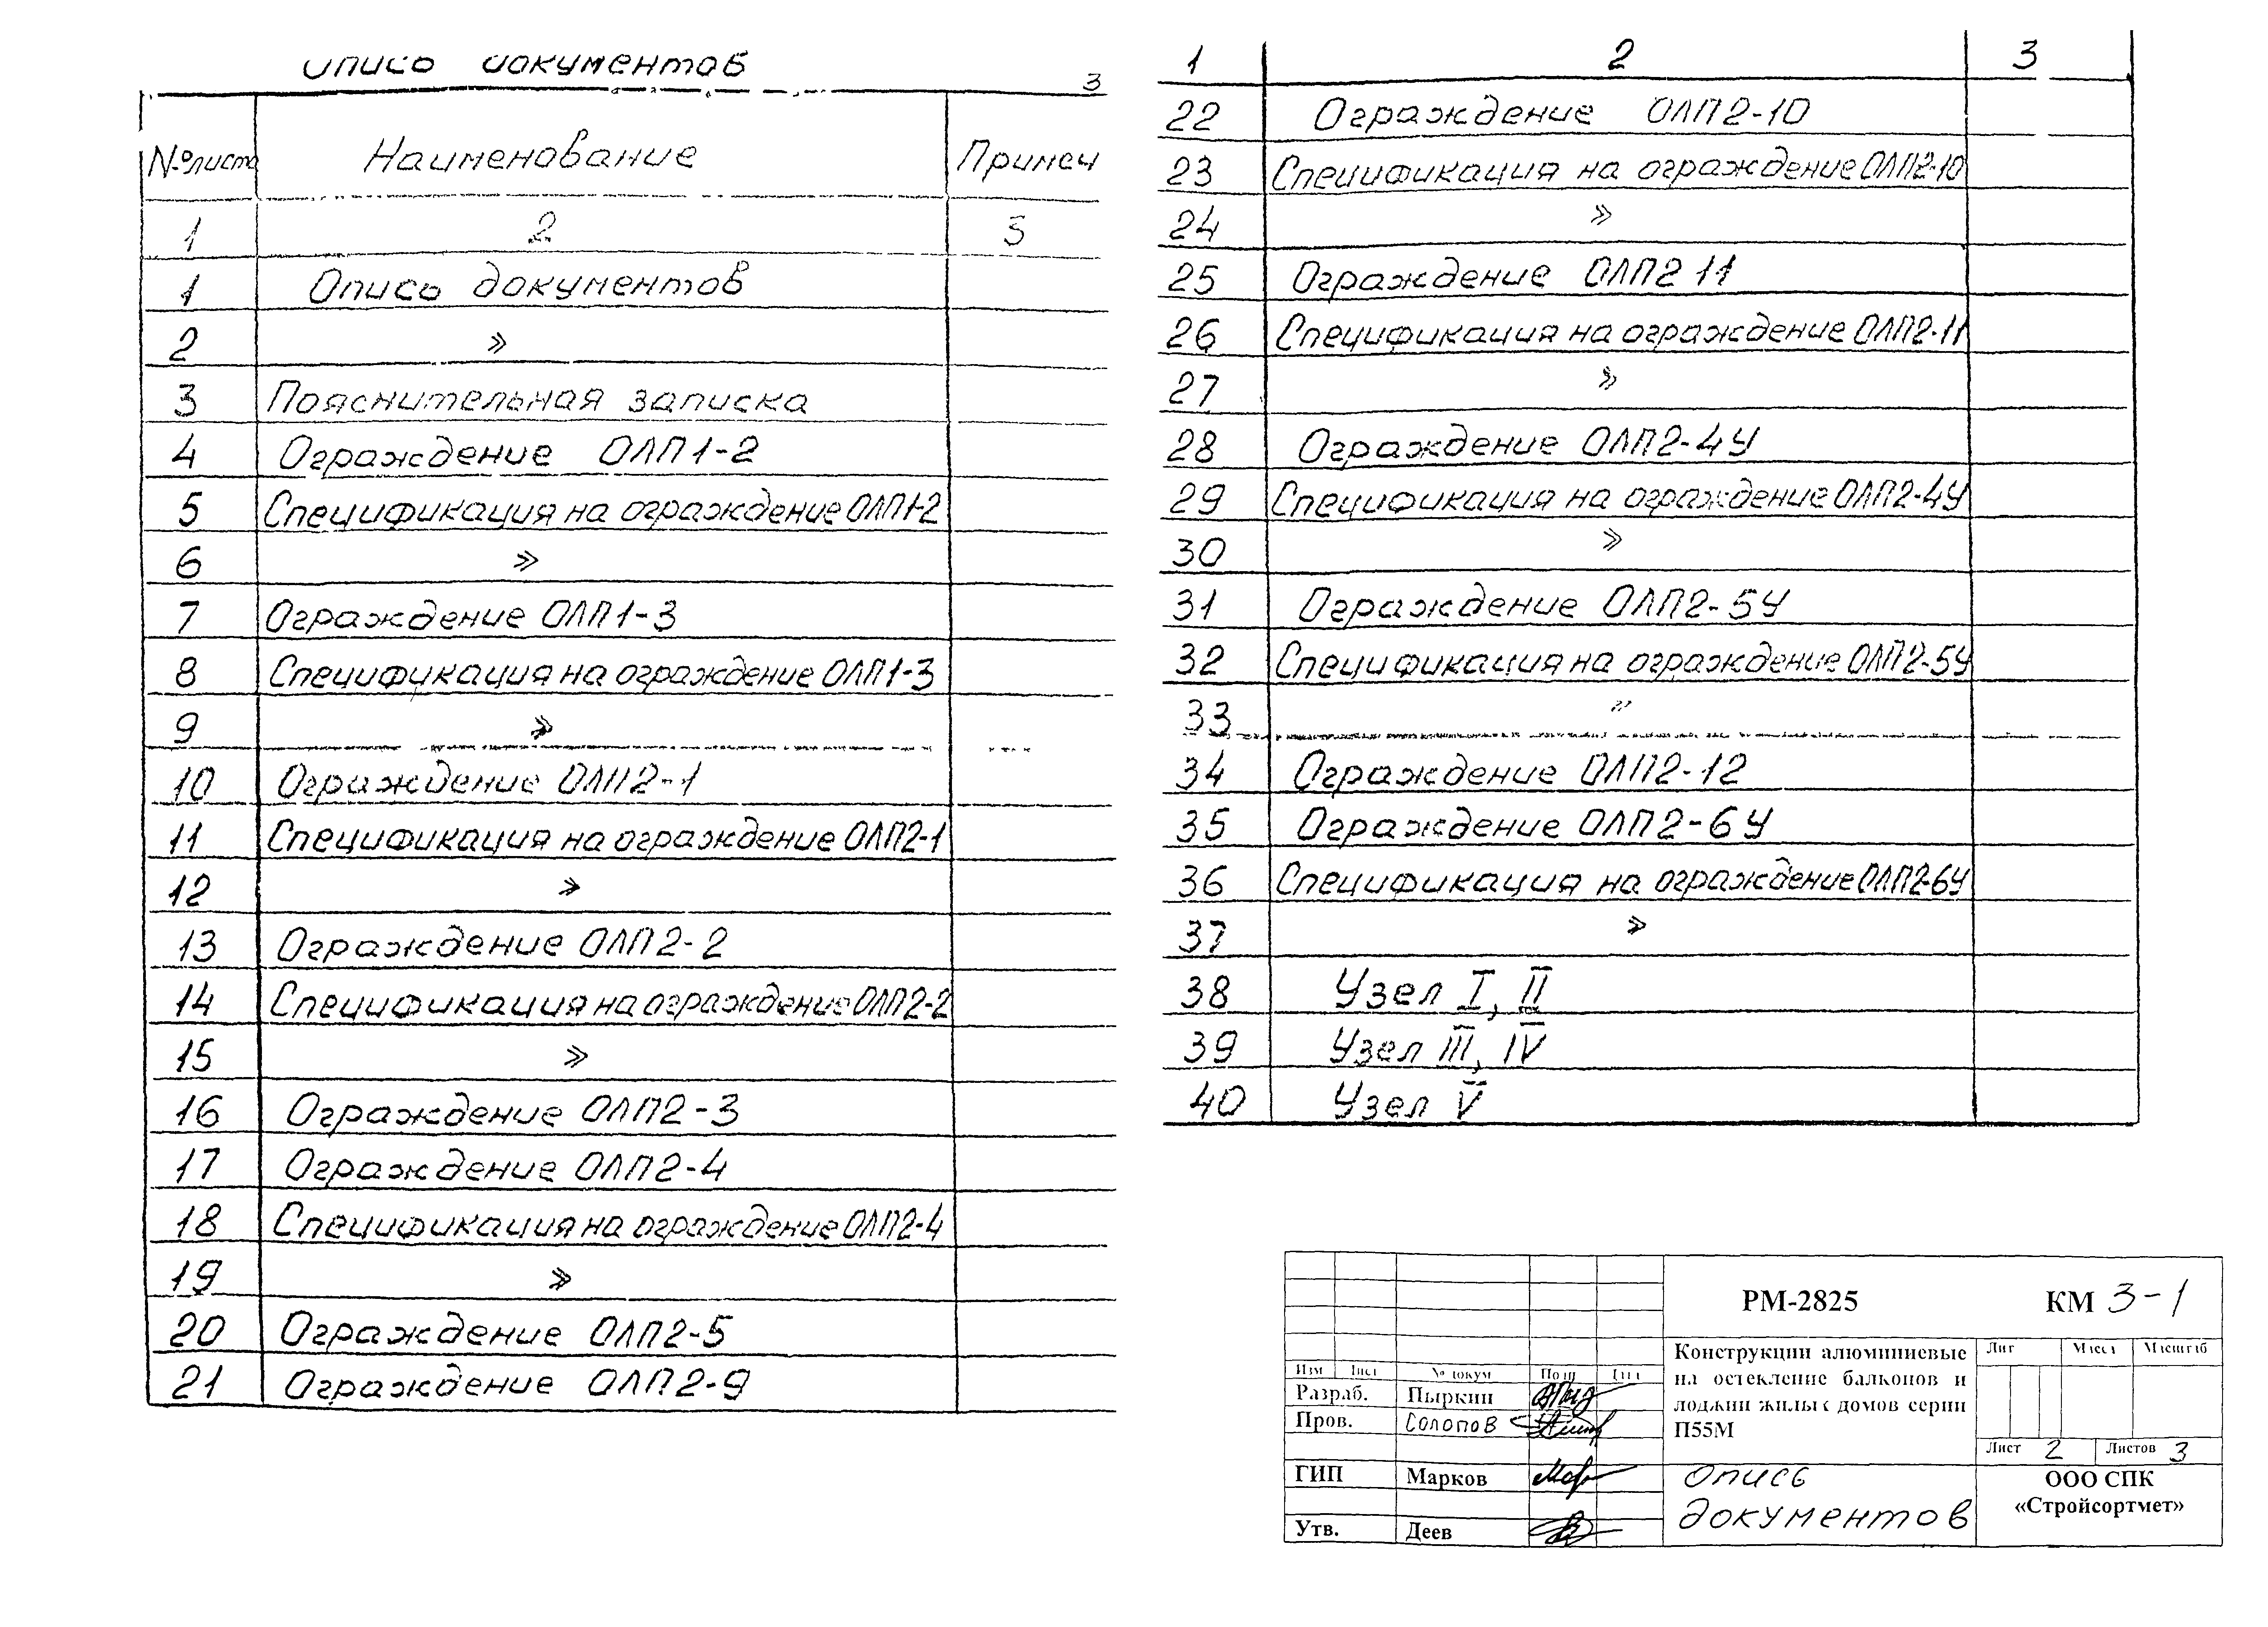 опись документов
3
№ листа Наименование Примеч
1 2 3
1 Опись документов
2 »
3 Пояснительная записка
4 Ограждение ОЛП1-2
5 Спецификация на ограждение ОЛП1-2
6 »
7 Ограждение ОЛП1-3
8 Спецификация на ограждение ОЛП1-3
9 »
10 Ограждение ОЛП2-1
11 Спецификация на ограждение ОЛП2-1
12 »
13 Ограждение ОЛП2-2
14 Спецификация на ограждение ОЛП2-2
15 »
16 Ограждение ОЛП2-3
17 Ограждение ОЛП2-4
18 Спецификация на ограждение ОЛП2-4
19 »
20 Ограждение ОЛП2-5
21 Ограждение ОЛП2-9
1 2 3
22 Ограждение ОЛП2-10
23 Спецификация на ограждение ОЛП2-10
24 »
25 Ограждение ОЛП2 11
26 Спецификация на ограждение ОЛП2-11
27 »
28 Ограждение ОЛП2-4У
29 Спецификация на ограждение ОЛП2-4У
30 »
31 Ограждение ОЛП2-5У
32 Спецификация на ограждение ОЛП2-5У
33 "
34 Ограждение ОЛП2-12
35 Ограждение ОЛП2-6У
36 Спецификация на ограждение ОЛП2-6У
37 »
38 Узел I, II
39 Узел III, IV
40 Узел V
РМ-2825 КМ 3-1
Изм Лист № докум Подп Дата
Разраб. Пыркин
Пров. Солопов
ГИП Марков
Утв. Деев
Конструкции алюминиевые
на остекление балконов и
лоджии жилых домов серии
П55М
Лит Масса Масштаб
Лист 2 Листов 3
опись
документов
ООО СПК
«Стройсортмет»